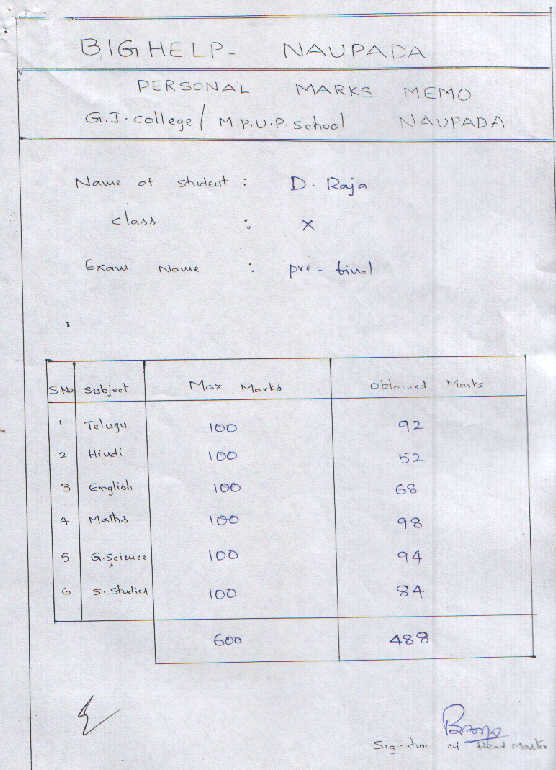 BIGHELP- NAUPADA
PERSONAL MARKS MEMO
G.J.college/ M P.U.P.School NAUPADA
Name of student : D. Raja
class : X
Exam Name : pre-final
S.No Subject Max Marks Obtained Marks
1 Telugu 100 92
2 Hindi 100 52
3 English 100 68
4 Maths 100 98
5 G.Science 100 94
6 S.Studies 100 84
600 488
Signature of Head Master